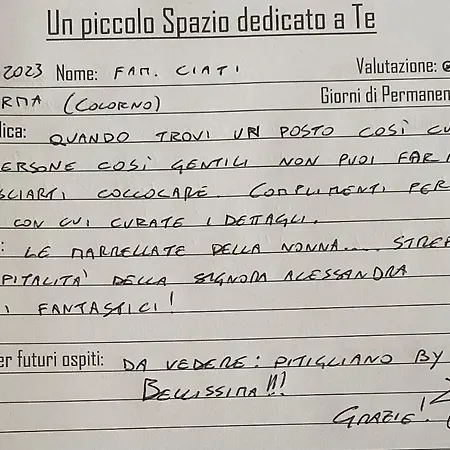 Un piccolo Spazio dedicato a Te
2023 Nome: FAM. CIATI Valutazione:
RMA (COLORNO) Giorni di Permanen
lica: QUANDO TROVI UN POSTO COSÌ CU
PERSONE COSÌ GENTILI NON PUOI FAR
SCIARTI COCCOLARE. COMPLIMENTI PER
CON CUI CURATE I DETTAGLI.
: LE MARMELLATE DELLA NONNA.... STREP
PITALITA' DELLA SIGNORA ALESSANDRA
I FANTASTICI!
er futuri ospiti: DA VEDERE: PITIGLIANO BY
BELLISSIMA!!!
GRAZIE!